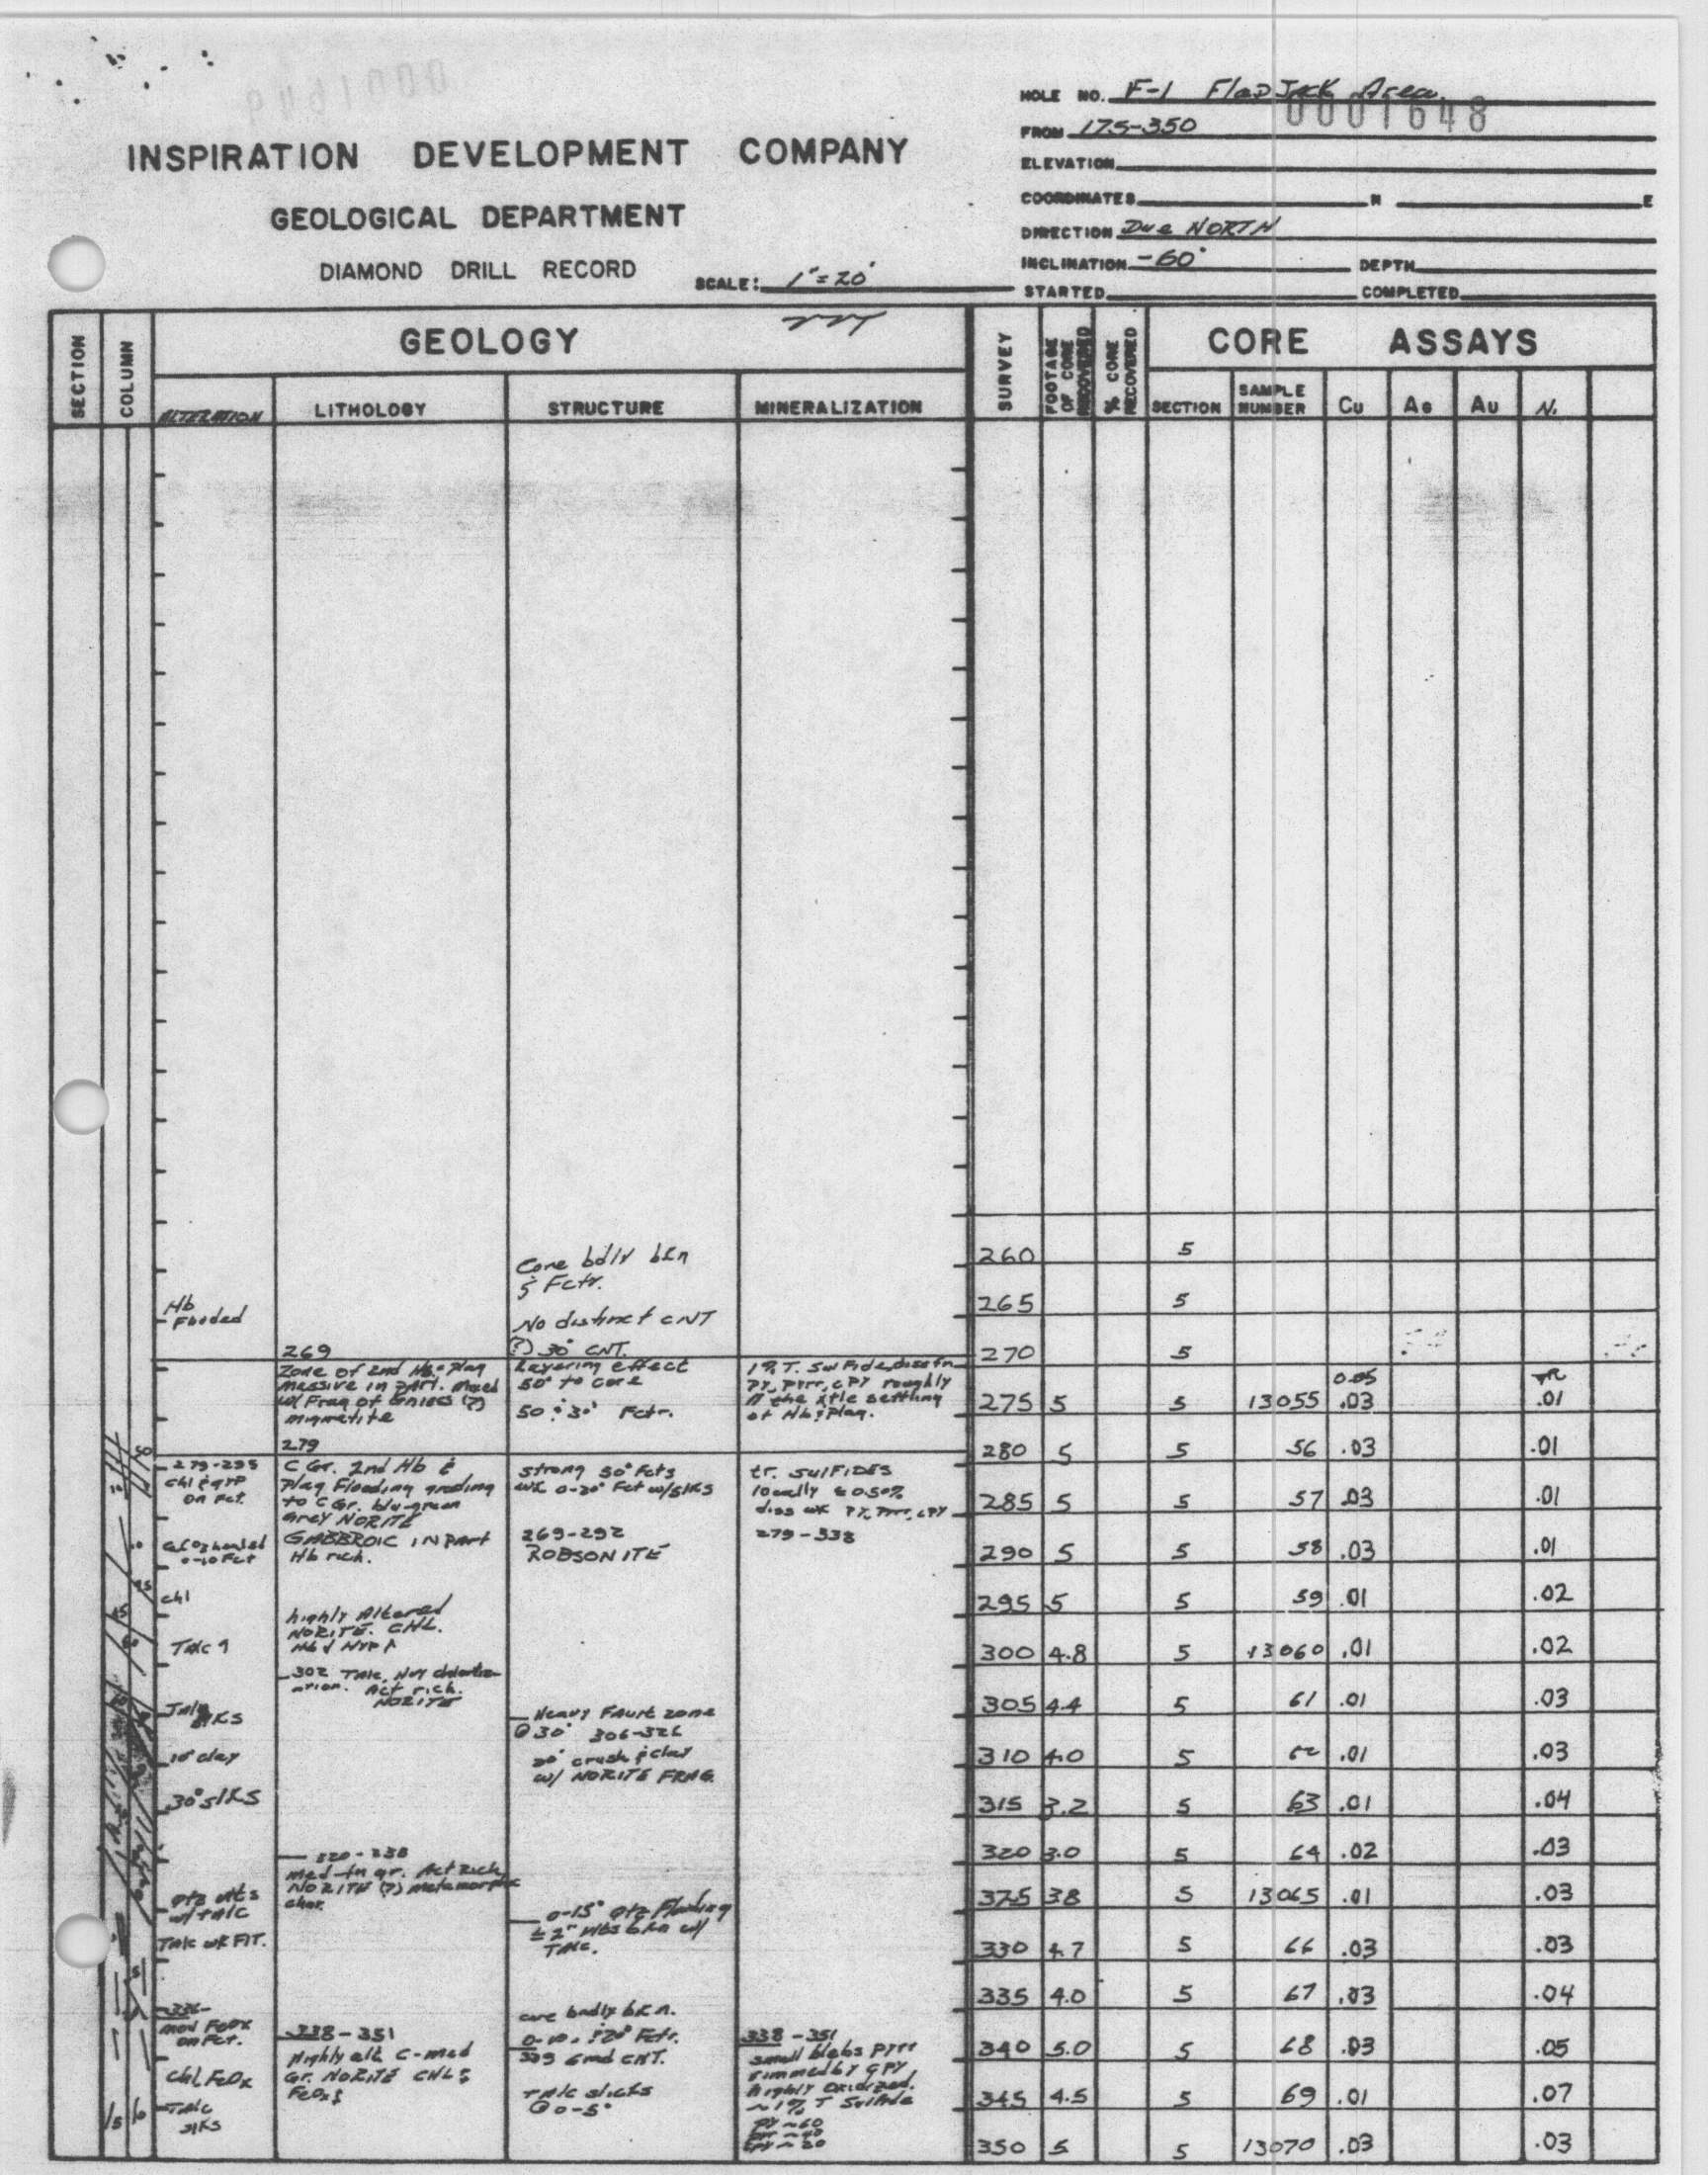 HOLE NO. F-1 FlapJack Area
0001648
FROM 175-350
INSPIRATION DEVELOPMENT COMPANY
ELEVATION
COORDINATES N E
GEOLOGICAL DEPARTMENT
DIRECTION Due NORTH
INCLINATION -60° DEPTH
DIAMOND DRILL RECORD SCALE: 1"=20'
STARTED COMPLETED
SECTION
COLUMN
GEOLOGY
SURVEY
FOOTAGE OF CORE RECOVERED
% CORE RECOVERED
CORE ASSAYS
ALTERATION LITHOLOGY STRUCTURE MINERALIZATION
SECTION SAMPLE NUMBER Cu Ag Au Ni
Core bdly bkn
& Fctr.
260 5
Hb
Flooded
No distinct CNT
265 5
(?) 30° CNT.
269
270 5
Zone of 2nd Hb-plag
massive in part. mixed
w/ Frag of Gneiss (?)
magnetite
Layering effect
50° to core
50 & 30° Fctr.
1% T. Sulfide, diss fn
py, pyrr, cpy roughly
the xtle settling
of Hb & Plag.
0.05 TR
275 5 5 13055 .03 .01
279
280 5 5 56 .03 .01
279-295
chl & gyp
on Fct.
C Gr. 2nd Hb &
plag Flooding grading
to C Gr. blu-green
grey NORITE
GABBROIC IN part
Hb rich.
strong 50° Fcts
wk 0-20° Fct w/slks
269-292
ROBSONITE
tr. SULFIDES
locally ≤0.50%
diss wk py, pyrr, cpy
279-338
285 5 5 57 .03 .01
0-10 Fct
290 5 5 58 .03 .01
chl
295 5 5 59 .01 .02
highly Altered
NORITE. CHL.
Talc
300 4.8 5 13060 .01 .02
302 Talc
Act rich.
NORITE
305 4.4 5 61 .01 .03
slks
Heavy Fault zone
@ 30° 306-326
20° crush & clay
w/ NORITE FRAG.
10° clay
310 4.0 5 62 .01 .03
30° slks
315 3.2 5 63 .01 .04
320-338
med-fn gr. Act Rich
NORITE (?) metamorphic
char.
320 3.0 5 64 .02 .03
qtz vlts
w/ talc
0-15° qtz Flooding
≤ 2" vlts bkn w/
Talc.
375 3.8 5 13065 .01 .03
Talc wk FlT.
330 4.7 5 66 .03 .03
335 4.0 5 67 .03 .04
336-
mod FeOx
on Fct.
338-351
Highly alt C-med
Gr. NORITE CHL &
FeOx
core badly bkn.
0-10. & 20° Fctr.
339 6md CNT.
Talc slicks
@ 0-5°
338-351
small blebs pyrr
rimmed by CPY
highly oxidized.
~1% T Sulfide
py ~60
pyrr ~40
cpy ~20
340 5.0 5 68 .03 .05
chl FeOx
345 4.5 5 69 .01 .07
Talc
slks
350 5 5 13070 .03 .03